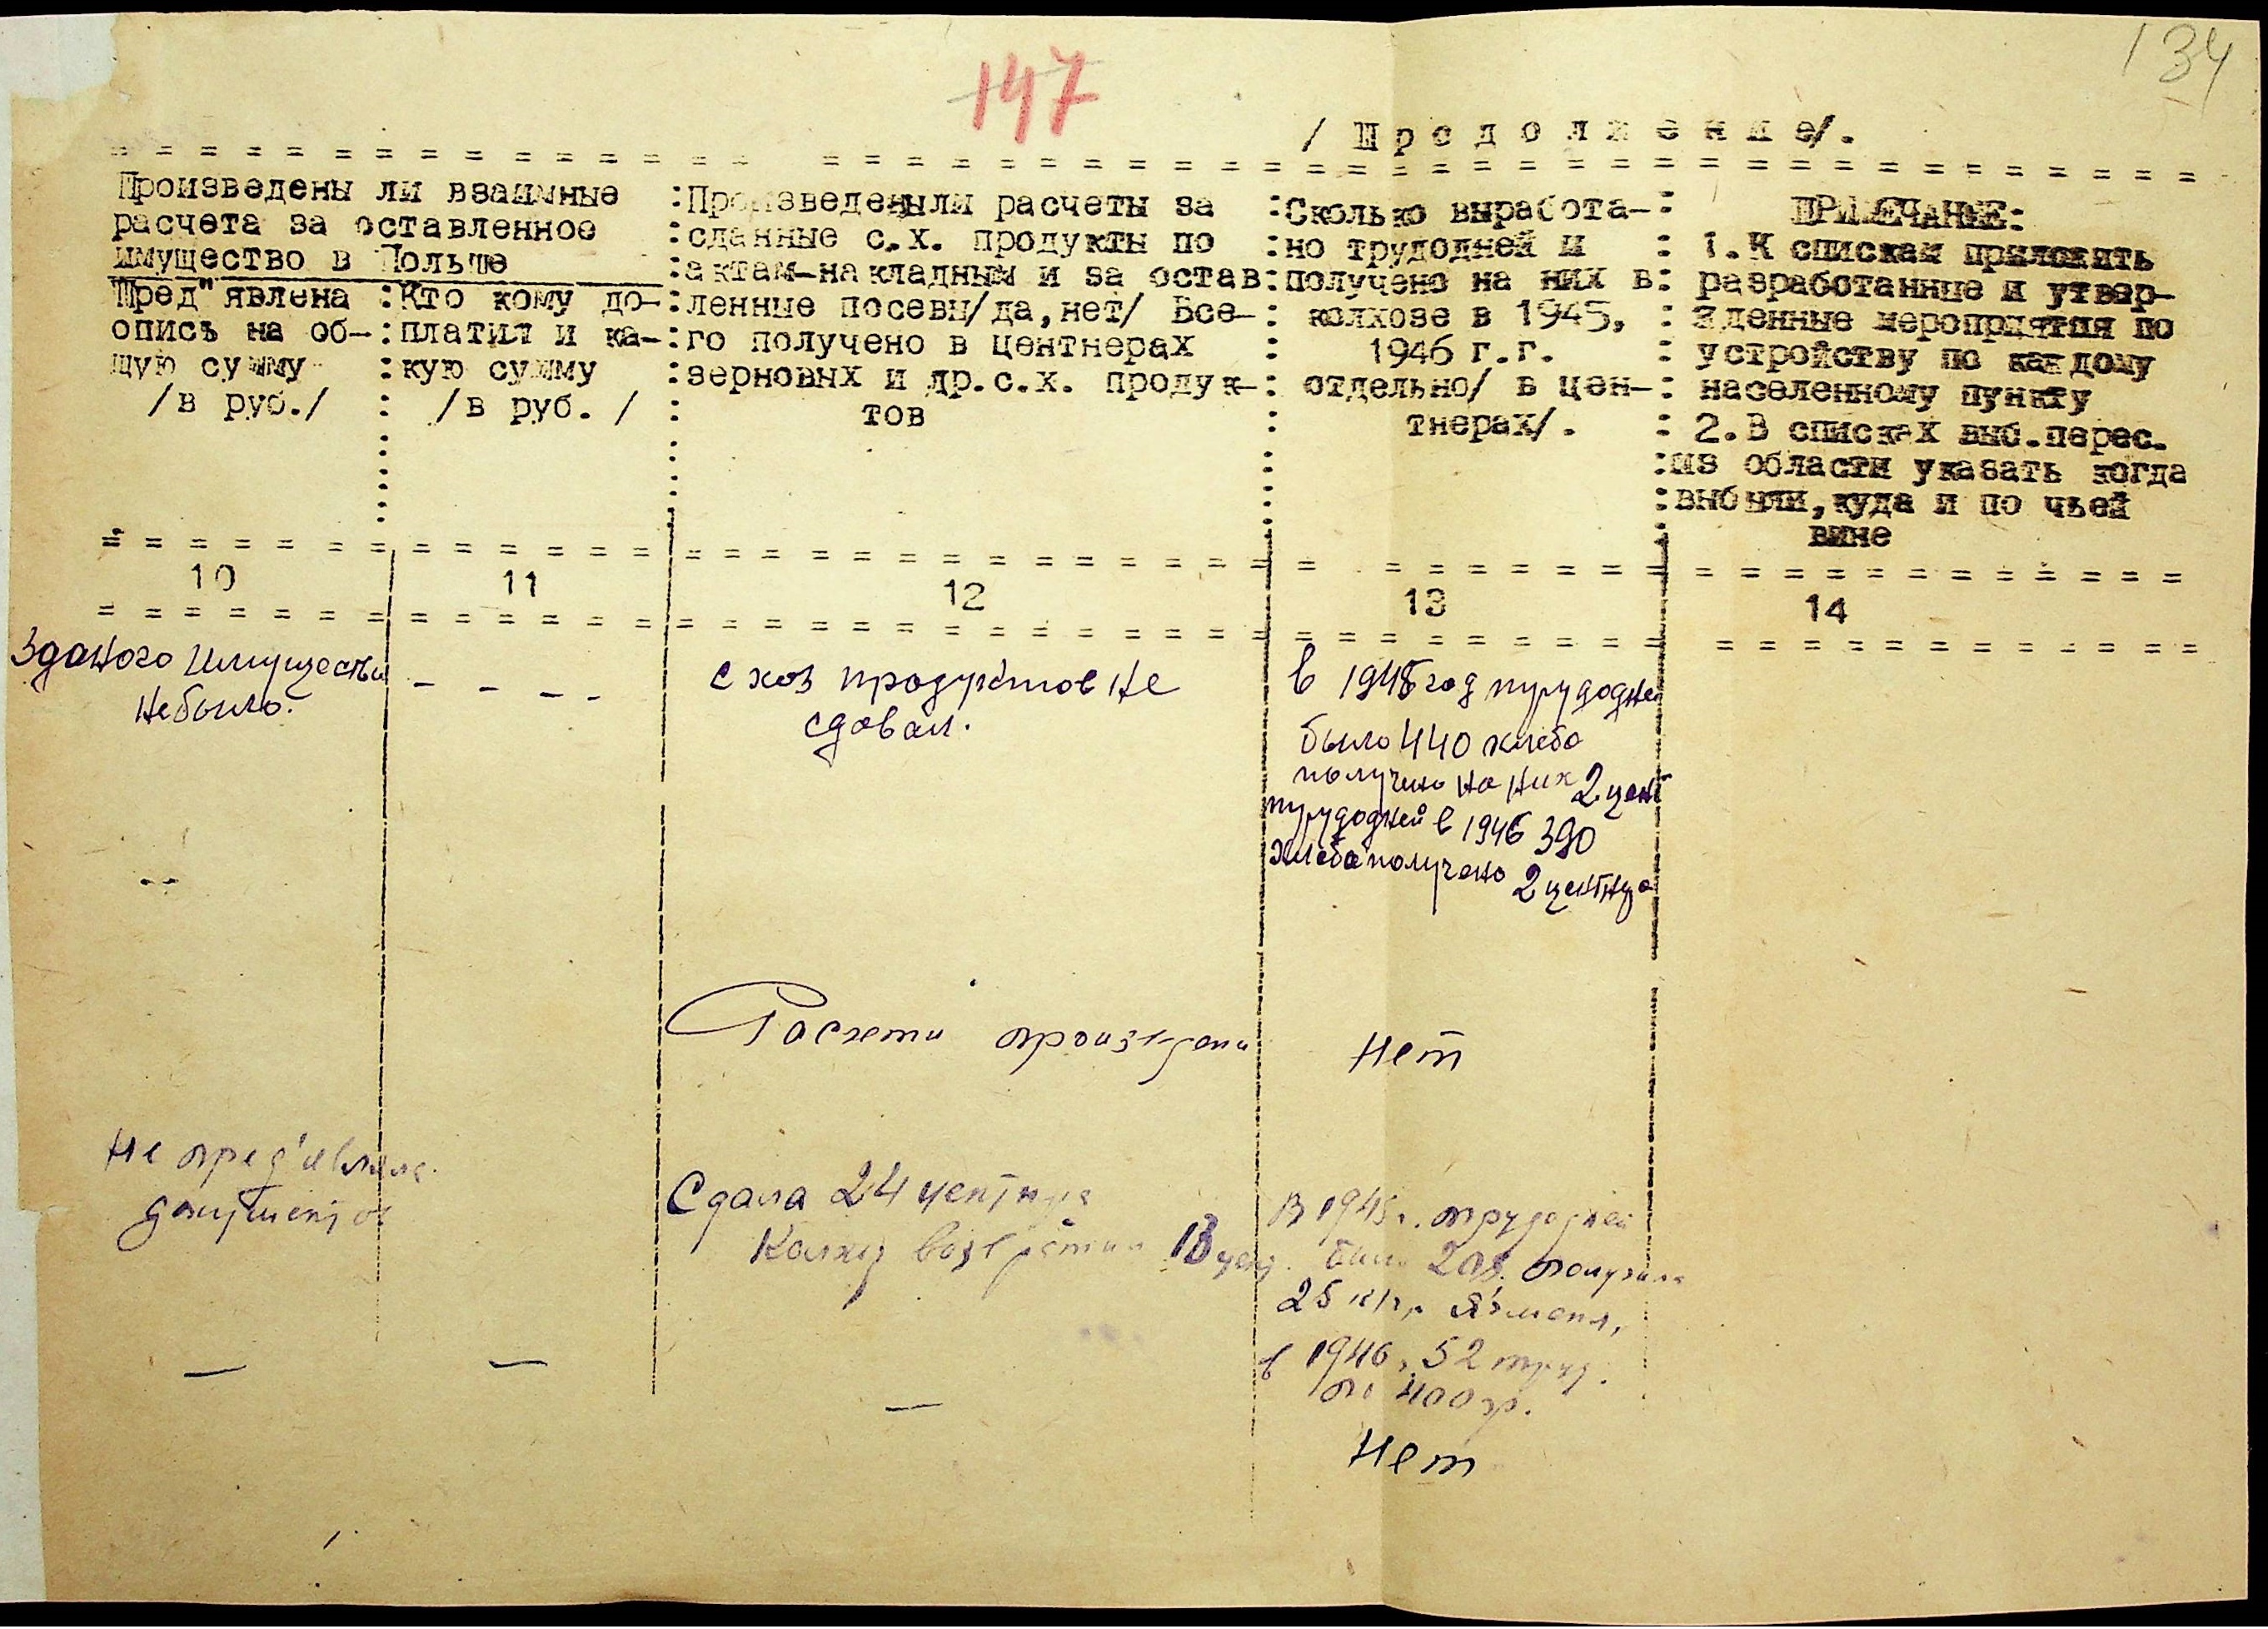 134
147
/ П р о д о л ж е н и е/.
Произведены ли взаимные
расчета за оставленное
имущество в Польше
Пред"явлена
опись на об-
щую сумму
/в руб./
Кто кому до-
платил и ка-
кую сумму
/в руб. /
:Произведены ли расчеты за
:сданные с.х. продукты по
:актам-накладным и за остав
:ленные посевы/да,нет/ Все-
:го получено в центнерах
:зерновых и др.с.х. продук-
тов
:Сколько выработа-
:но трудодней и
:получено на них в
: колхозе в 1945,
: 1946 г.г.
: отдельно/ в цен-
тнерах/.
: ПРИМЕЧАНИЕ:
: 1.К спискам приложить
: разработанные и утвер-
: жденные мероприятия по
: устройству по каждому
: населенному пункту
: 2.В списках выб.перес.
:из области указать когда
:выбыли,куда и по чьей
вине
10 11 12 13 14
Зданого имущества
небыло.
- - - -
с хоз продуктов не
сдовал.
в 1945 год трудодне
было 440 хлеба
получено на них 2 цент
трудодней в 1946 390
хлеба получено 2 центнра
Росчети произведени
Нет
Не пред'явлила
документов
Сдала 24 центнра
Колхоз возвратил 13 цент.
В 1945г. трудодней
было получила
25 кгр. ячменя,
в 1946, 52 труд.
по 400 гр.
—
—
—
Нет